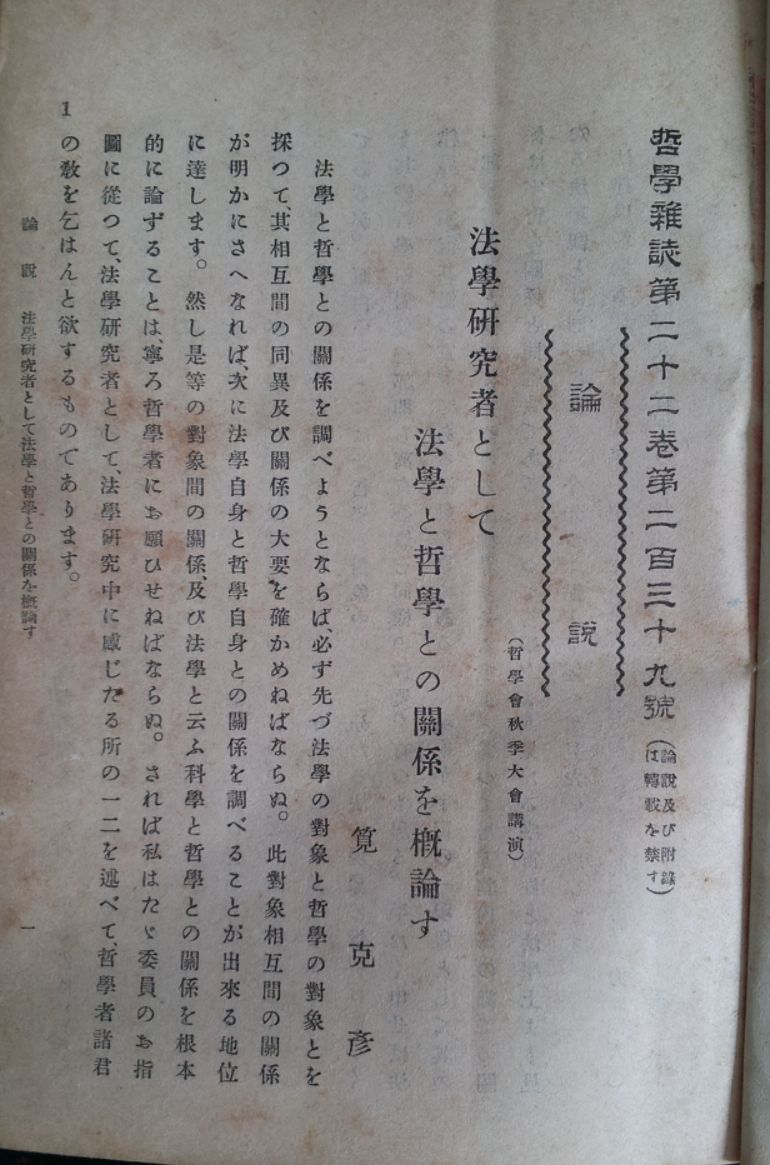 哲學雜誌第二十二卷第二百三十九號
(論說及び附錄
は轉載を禁ず)
論說
(哲學會秋季大會講演)
法學硏究者として
法學と哲學との關係を槪論す
筧克彥
法學と哲學との關係を調べようとならば、必ず先づ法學の對象と哲學の對象とを
採つて、其相互間の同異及び關係の大要を確かめねばならぬ。此對象相互間の關係
が明かにさへなれば、次に法學自身と哲學自身との關係を調べることが出來る地位
に達します。然し是等の對象間の關係、及び法學と云ふ科學と哲學との關係を根本
的に論ずることは、寧ろ哲學者にお願ひせねばならぬ。されば私はたゞ委員のお指
圖に從つて、法學硏究者として、法學硏究中に感じたる所の一二を述べて、哲學者諸君
の敎を乞はんと欲するものであります。
1
論說 法學硏究者として法學と哲學との關係を槪論す
一